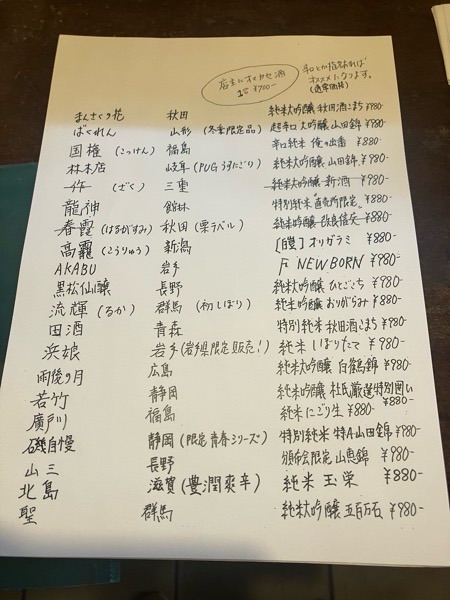 店主にオマカセ酒
¥700-
辛口とか指定あれば
オススメになります。
(通常価格)
まんさくの花 秋田 純米大吟醸 秋田酒こまち ¥980-
ばくれん 山形 (冬季限定品) 超辛口 大吟醸 山田錦 ¥980-
国権 (こっけん) 福島 辛口純米 俺の出番 ¥880-
林本店 岐阜 (PUG うすにごり) 純米大吟醸 山田錦 ¥980-
作 (ざく) 三重 純米大吟醸 新酒 ¥980-
龍神 館林 特別純米 直売所限定 ¥880-
春霞 (はるがすみ) 秋田 (栗ラベル) 純米吟醸 改良信交 ¥880-
高龗 (こうりゅう) 新潟 オリガラミ ¥880-
AKABU 岩手 F NEWBORN ¥980-
黒松仙醸 長野 純米大吟醸 ひとごこち ¥980-
流輝 (るか) 群馬 (初しぼり) 純米吟醸 おりがらみ ¥880-
田酒 青森 特別純米 秋田酒こまち ¥980-
浜娘 岩手 (岩手県限定販売!) 純米 しぼりたて ¥980-
雨後の月 広島 純米大吟醸 白鶴錦 ¥980-
若竹 静岡 純米吟醸 杜氏厳選特別囲い ¥880-
廣戸川 福島 純米 にごり生 ¥880-
磯自慢 静岡 (限定 青春シリーズ) 特別純米 特A山田錦 ¥980-
山三 長野 頒布会限定 山恵錦 ¥980-
北島 滋賀 (豊潤爽辛) 純米 玉栄 ¥880-
聖 群馬 純米大吟醸 五百万石 ¥980-